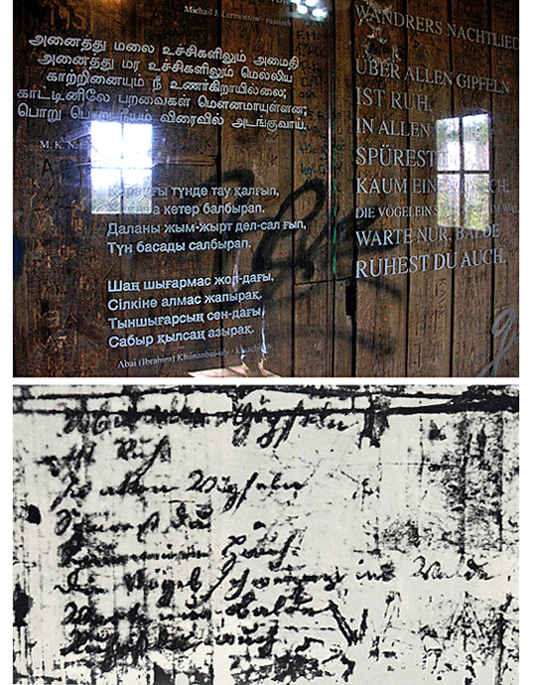 Michail J. Lermontow / russisch
அனைத்து மலை உச்சிகளிலும் அமைதி
அனைத்து மர உச்சிகளிலும் மெல்லிய
காற்றினையும் நீ உணர்கிறாயில்லை;
காட்டினிலே பறவைகள் மௌனமாயுள்ளன;
பொறு நீயும் விரைவில் அடங்குவாய்.
M. K. N.
түнде тау қалғып,
кетер балбырап.
Даланы жым-жырт дел-сал қып,
Түн басады салбырап.
Шаң шығармас жол-дағы,
Сілкіне алмас жапырақ.
Тыншығарсың сен-дағы,
Сабыр қылсаң азырақ.
Abai (Ibrahim) Khunanbai-uly /
WANDRERS NACHTLIED
ÜBER ALLEN GIPFELN
IST RUH,
IN ALLEN
SPÜREST
KAUM
DIE VÖGELEIN
WARTE NUR, BALDE
RUHEST DU AUCH.
allen Gipfeln
ist Ruh
In allen Wipfeln
Spürest du
Kaum einen Hauch.
Die Vögel schweigen im Walde
Warte nur balde
Ruhest du auch